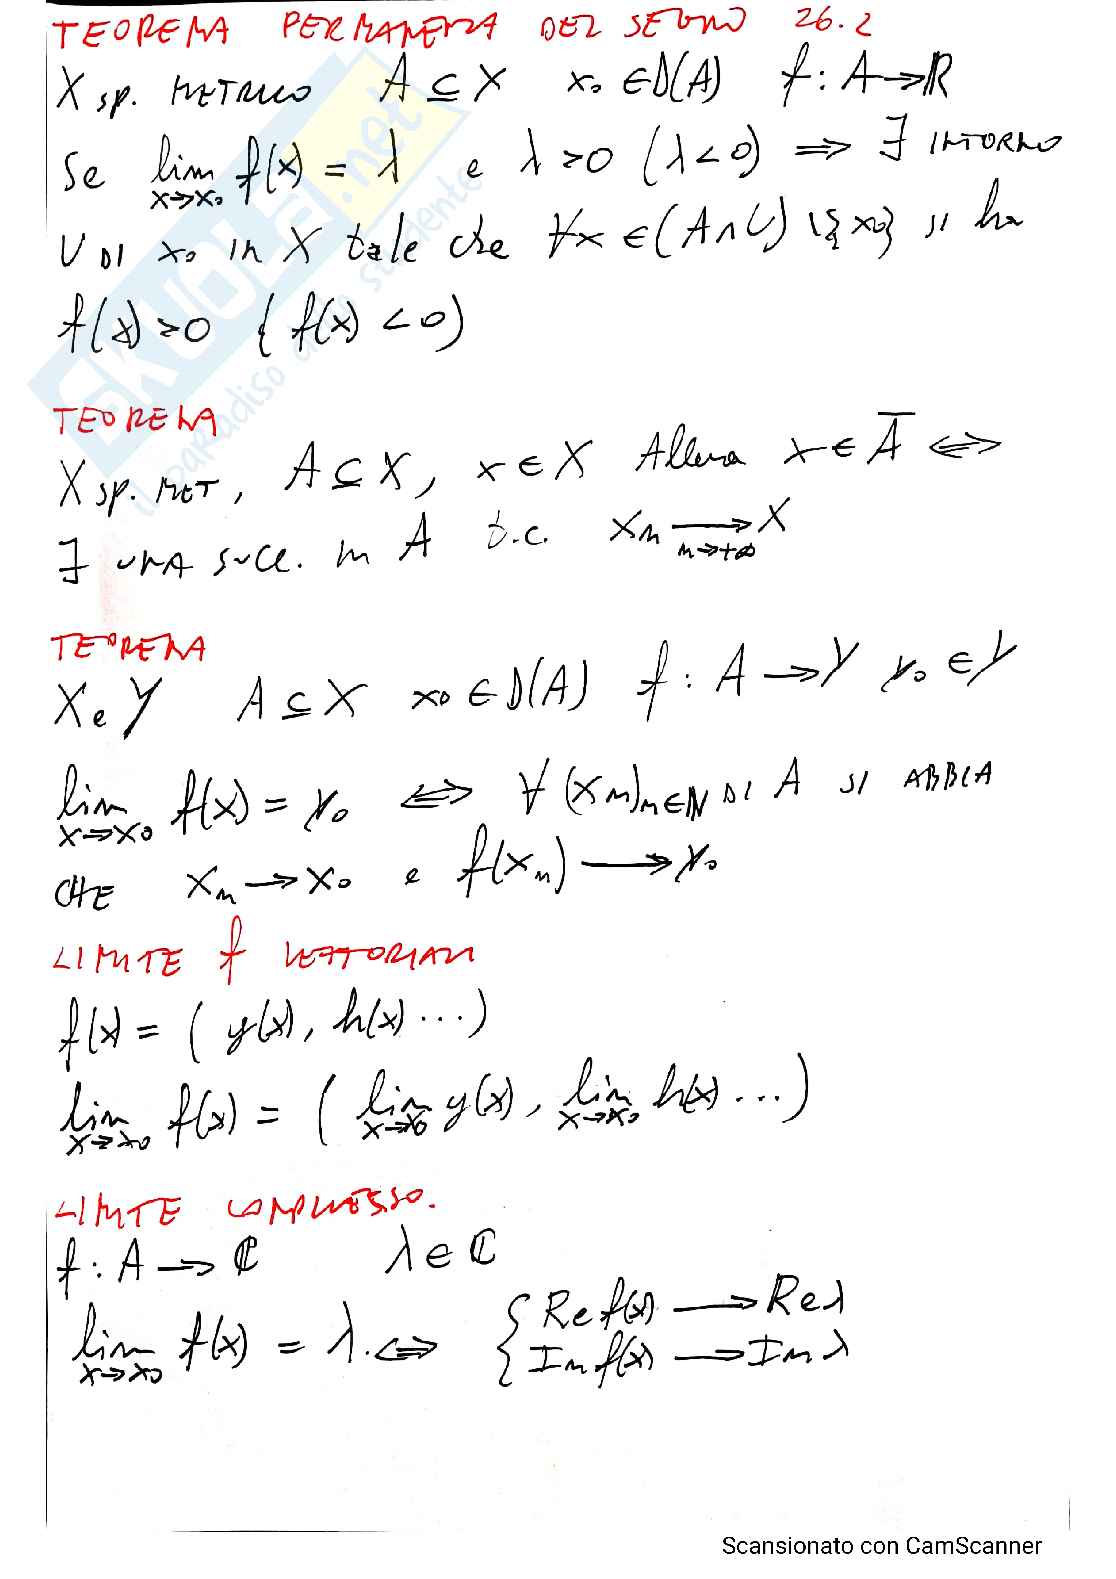 TEOREMA PERMANENZA DEL SEGNO 26.2
X sp. METRICO A ⊆ X x₀ ∈ D(A) f : A → ℝ
Se lim x→x₀ f(x) = λ e λ > 0 (λ < 0) ⇒ ∃ INTORNO
U DI x₀ in X tale che ∀x ∈ (A ∩ U) \ {x₀} si ha
f(x) > 0 (f(x) < 0)
TEOREMA
X sp. MET, A ⊆ X, x ∈ X Allora x ∈ A̅ ⇔
∃ UNA SUCC. in A t.c. Xn → X n→+∞
TEOREMA
X e Y A ⊆ X x₀ ∈ D(A) f : A → Y y₀ ∈ Y
lim x→x₀ f(x) = y₀ ⇔ ∀ (Xn)n∈ℕ DI A SI ABBIA
CHE Xn → X₀ e f(Xn) → y₀
LIMITE f VETTORIALI
f(x) = ( y(x), h(x) ... )
lim x→x₀ f(x) = ( lim x→x₀ y(x), lim x→x₀ h(x) ... )
LIMITE COMPLESSO.
f : A → ℂ λ ∈ ℂ
lim x→x₀ f(x) = λ. ⇔ { Re f(x) → Re λ
{ Im f(x) → Im λ
SKUOLA.net
il paradiso dello studente
Scansionato con CamScanner